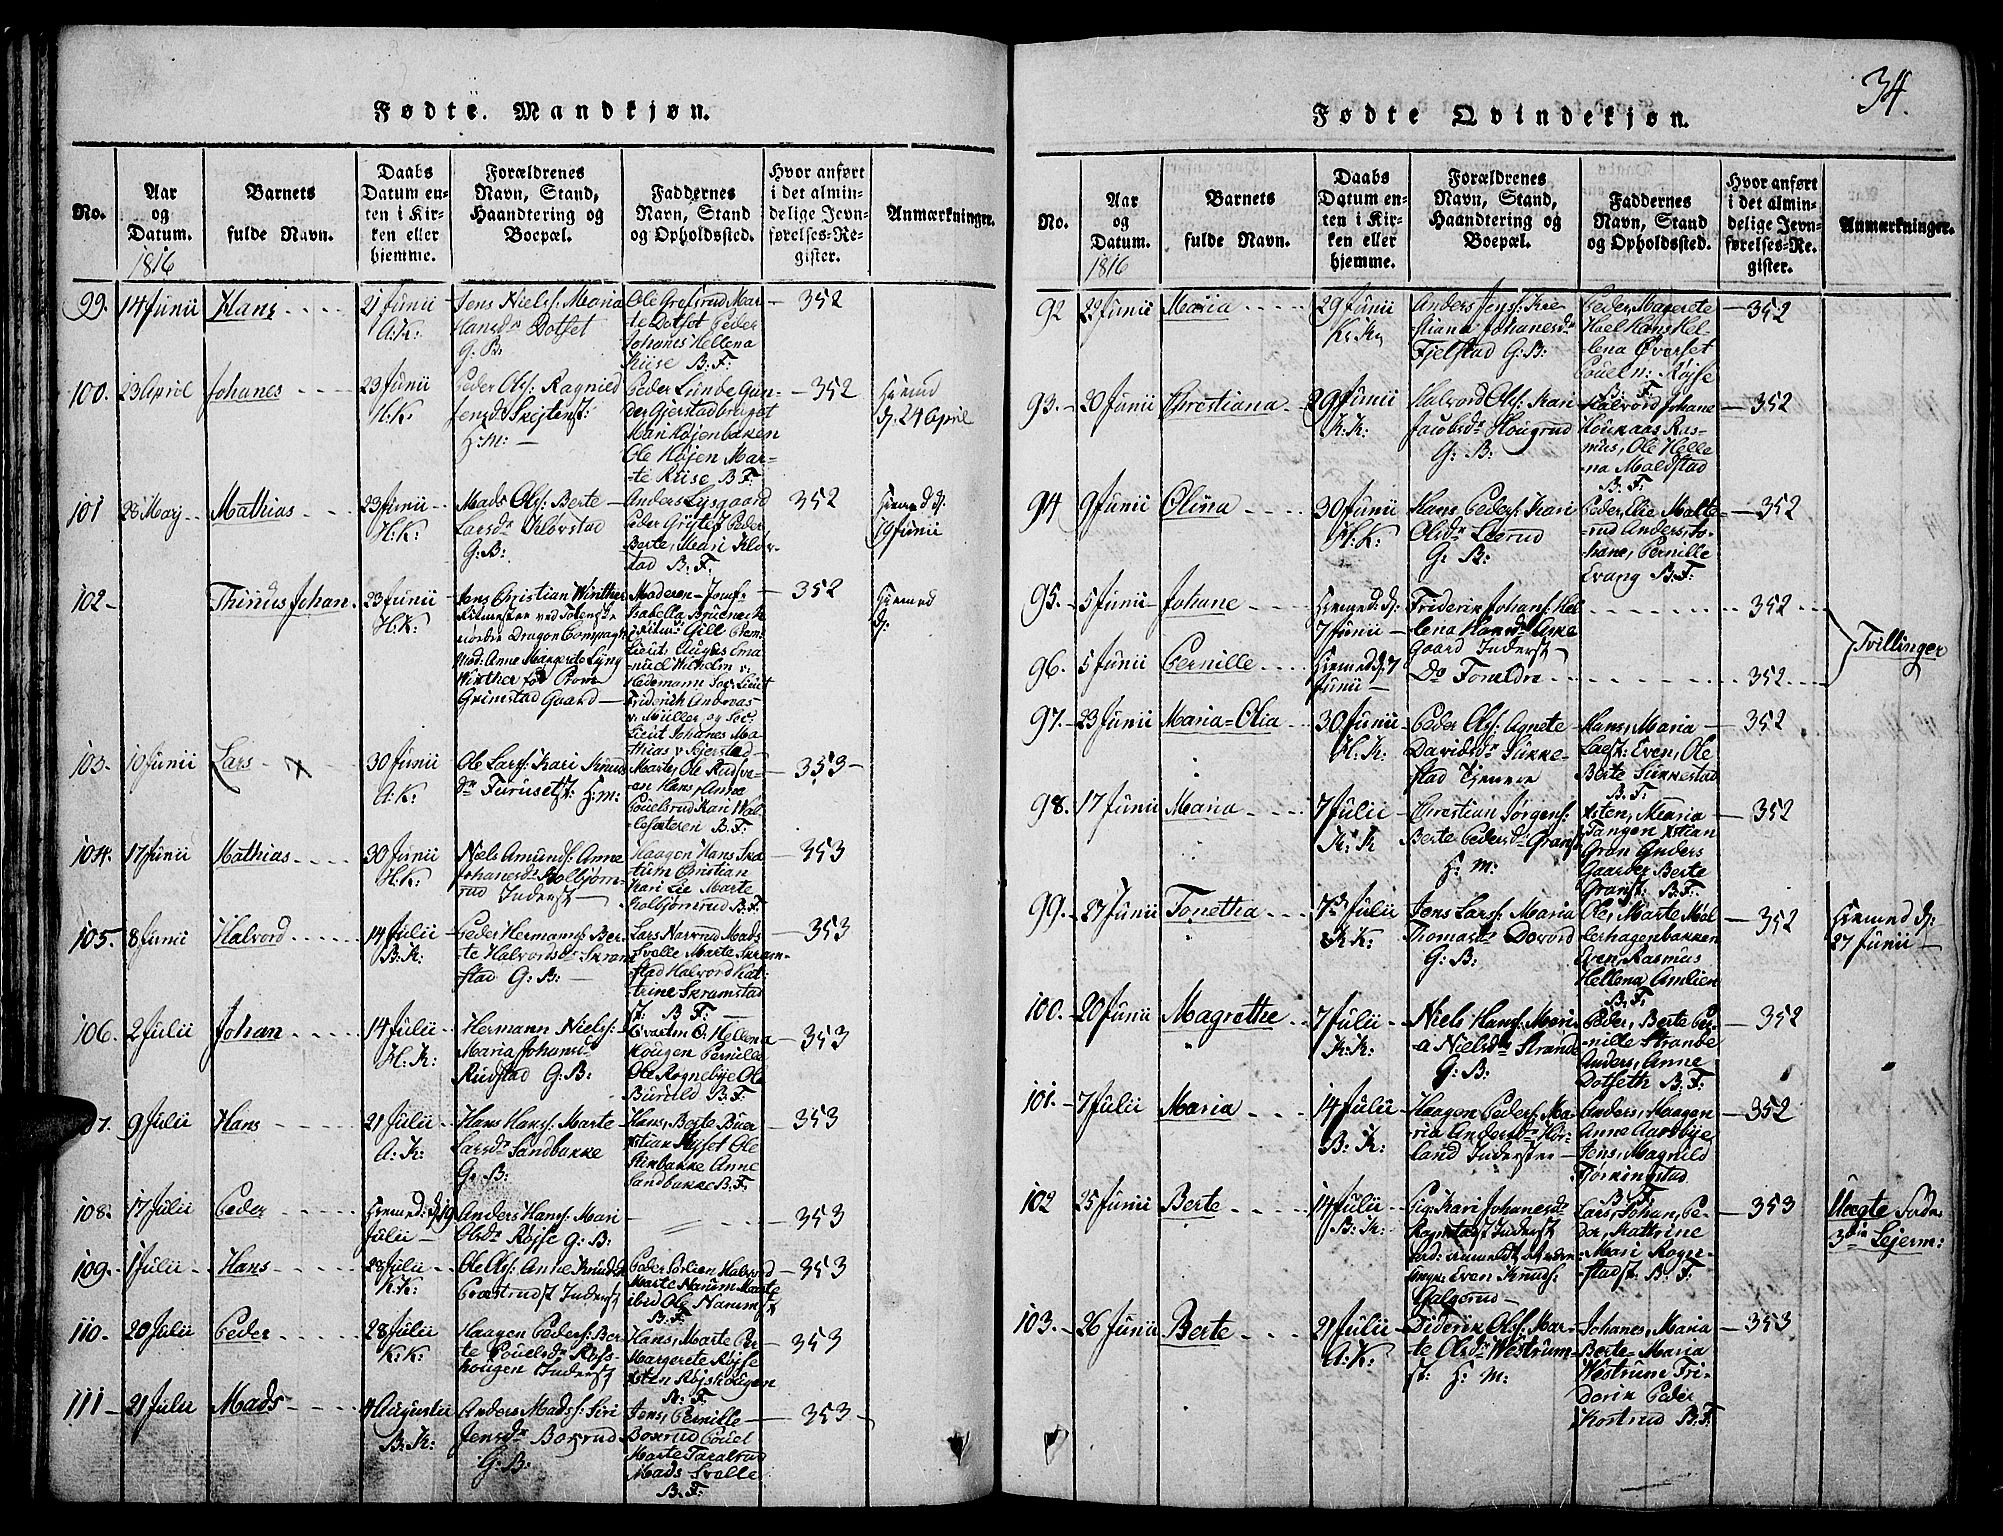 Fødte. Mandkjøn.
No.
Aar
og
Datum.
1816
Barnets
fulde Navn.
Daabs
Datum en-
ten i Kir-
ken eller
hjemme.
Forældrenes
Navn, Stand,
Haandtering og
Boepæl.
Faddernes
Navn, Stand
og Opholdssted.
Hvor anført
i det almin-
delige Jevn-
førelses-Re-
gister.
Anmærkninger.
99. 14 Junii Hans 21 Junii A:K: Jens Nielss: Maria
Hansdr Dotset
G: B:
Ole Grefsrud Mar-
te Dotset Peder
Johanes Hellena
Kiise B: F:
352
100. 23 April Johanes 23 Junii H:K: Peder Ols: Ragnild
Jensdr
H: M:
Peder Lunde Gun-
der Gjerstadbraget
Mari Højenbakken
Ole Højen Mar-
te Kiise B: F:
352
Hiemed
d: 24 April
101 28 Maj Mathias 23 Junii H:K: Mads Ols: Berte
Larsdr Kløvstad
G: B:
Anders Lysgaard
Peder
Berte, Mari Kløv-
stad B: F:
352
Hiemed d:
19 Junii
102 Thinus Johan 23 Junii H:K: Jens Christian Winther
Ritmester ved Totenske
nordre Dragon Compagn:
Mod: Anne Margrete Lyng
Winther fød Prom
Grimstad Gaard
Isabella
Gill Prem
Lieut: August Ema
nuel Wilhelm v:
Hedemann Sec: Lieut
Friderich Andreas
v: Müller og Sec:
Lieut Johanes Ma
thias v:
352
Hiemed
d:
103. 10 Junii Lars 30 Junii A:K: Ole Lars: Kari Knuds
dr Furusetst: H: M:
Marte, Ole
en Hans, Anne
Pouelsrud Kari
B: F:
353
104. 17 Junii Mathias 30 Junii H:K: Niels Amunds: Anne
Johanesdr Kolbjørn-
rud Inderst
Haagen Hans Ska
tum Christian
Kari Lie Marte
Kolbjørnrud B: F:
353
105. 8 Junii Halvord 14 Julii B:K: Peder Hermans: Ber-
te Halvorsdr Skram
stad G: B:
Lars Narrud Mads
Svelle Marte Skram-
stad Halvord Kat-
trine Skramstad
st: B: F:
353
106. 2 Julii Johan 14 Julii H:K: Hermann Niels:
Maria Johansdr
Rudstad G: B:
Hellena
Hougen Pernille
Ole Rognebye Ole
B: F:
353
107. 9 Julii Hans 21 Julii A:K: Hans Hans: Marte
Larsdr Sandbakke
G: B:
Hans, Berte
Ole
Anne
Sandbakke B: F:
353
108. 17 Julii Peder Hiemed: d: 19
Julii
Anders Hans: Mari
Olsdr Røjse G: B:
353
109. 1 Julii Hans 28 Julii K:K: Ole Ols: Anne Knudsdr
Præstrudst Inderst
Peder Halvord
Marte Narum Marte
ibid Ole Narumst
B: F:
353
110. 20 Julii Peder 28 Julii K:K: Haagen Peders: Ber-
te Pouelsdr Røjs-
hougen Inderst
Hans, Marte Per
Margrete Røjse
Røjshougen
B: F:
353
111 21 Julii Mads 4 Augustii B:K: Anders Mads: Siri
Jensdr Boxrud
G: B:
Jens, Pernille
Boxrud Pouel
Marte
Mads Svelle
B: F:
353
Fødte Qvindekjøn.
34.
No.
Aar
og
Datum.
1816
Barnets
fulde Navn.
Daabs
Datum en-
ten i Kir-
ken eller
hjemme.
Forældrenes
Navn, Stand,
Haandtering og
Boepæl.
Faddernes
Navn, Stand
og Opholdssted.
Hvor anført
i det almin-
delige Jevn-
førelses-Re-
gister.
Anmærkninger.
92 22 Junii Maria 29 Junii K:K: Anders Jens: Kre-
stiana Johanesdr
Fjelstad G: B:
Peder, Magrete
Hoel Hans Hel-
lena Øverset
Pouel n: Røjse
B: F:
352
93. 20 Junii Christiana 29 Junii K:K: Halvord Ols: Kari
Jacobsdr Hougrud
G: B:
Halvord Johane
Houkaas Ras-
mus, Ole Helle
na Maldstad
B: F:
352
94 9 Junii Olina 30 Junii H:K: Hans Peders: Kari
Olsdr Leerud
G: B:
Peder, Elie Malte-
rud Anders, Jo-
hane, Pernille
Evang B: F:
352
95. 5 Junii Johane Hiemed: d:
7 Junii
Friderik Johans: Hel
lena Hansdr
gaard Inderst
352
Tvillinger
96. 5 Junii Pernille Hiemed d: 7
Junii
Do Foreldre
352
97. 23 Junii Maria-Olia 30 Junii H:K: Peder Ols: Agnete
Davidsdr Sukke-
stad Tjenere
Hans, Maria
Even, Ole
Berte Sukkestad
B: F:
352
98. 17 Junii Maria 7 Julii K:K Christian Jørgens:
Berte Pedersdr Granst
H: M:
Maria
Tangen
Gran Anders
Gaarder Berte
Granst: B: F:
352
99. 27 Junii Tonetha 7de Julii K:K: Jens Lars: Maria
Thomasdr
G: B:
Ole, Marte Møl-
lerhagenbakken
Even, Rasmus
Hellena Amlien
B: F:
352
Hiemed d:
27 Junii
100. 20 Junii Magrethe 7 Julii K:K: Niels Hans: Mari-
a Nielsdr Strande
G: B:
Peder, Berte Per-
nille Strande
Anders, Anne
Dotseth B: F:
352
101. 7 Julii Maria 14 Julii B:K: Haagen Peders: Ma-
ria Andersdr Hør-
land Inderster
Anders, Haagen
Anne Aarsbye,
Jens, Magnild
B: F:
352
102 25 Junii Berte 14 Julii B:K: Pig: Kari Johanesdr
Rognstadst Inderst
Even Knuds:
Galgerud
Lars, Johan, Pe-
der, Kathrine
Mari Rogn-
stadst: B: F:
353
Uegte Fød.
Lejerm:
103. 26 Junii Berte 21 Julii A:K: Diderik Ols: Mar-
te Olsdr Westrum-
st: H: M:
Johanes, Maria
Berte Maria
Westrum Fri-
derik Peder
Kostrud B: F:
353